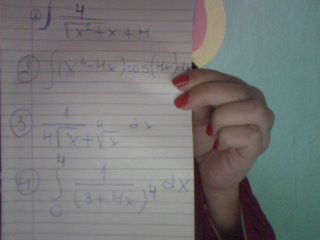 ① ∫ 4/√(x²+x+4)
② ∫(x²-4x)cos(4x)dx
③ 1/(4√x+∜x) dx
④ ∫₀⁴ 1/(3+4x)⁴ dx